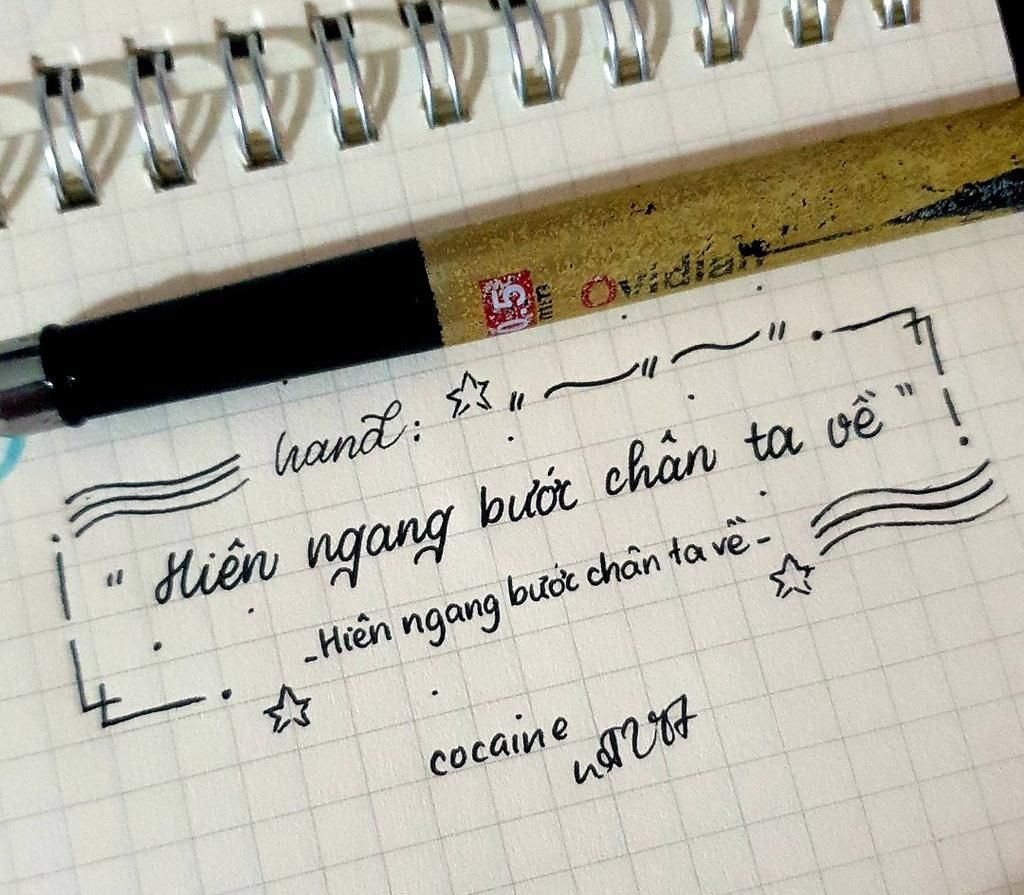 0.5 mm
hand:
" Hiên ngang bước chân ta về "
- Hiên ngang bước chân ta về -
cocaine